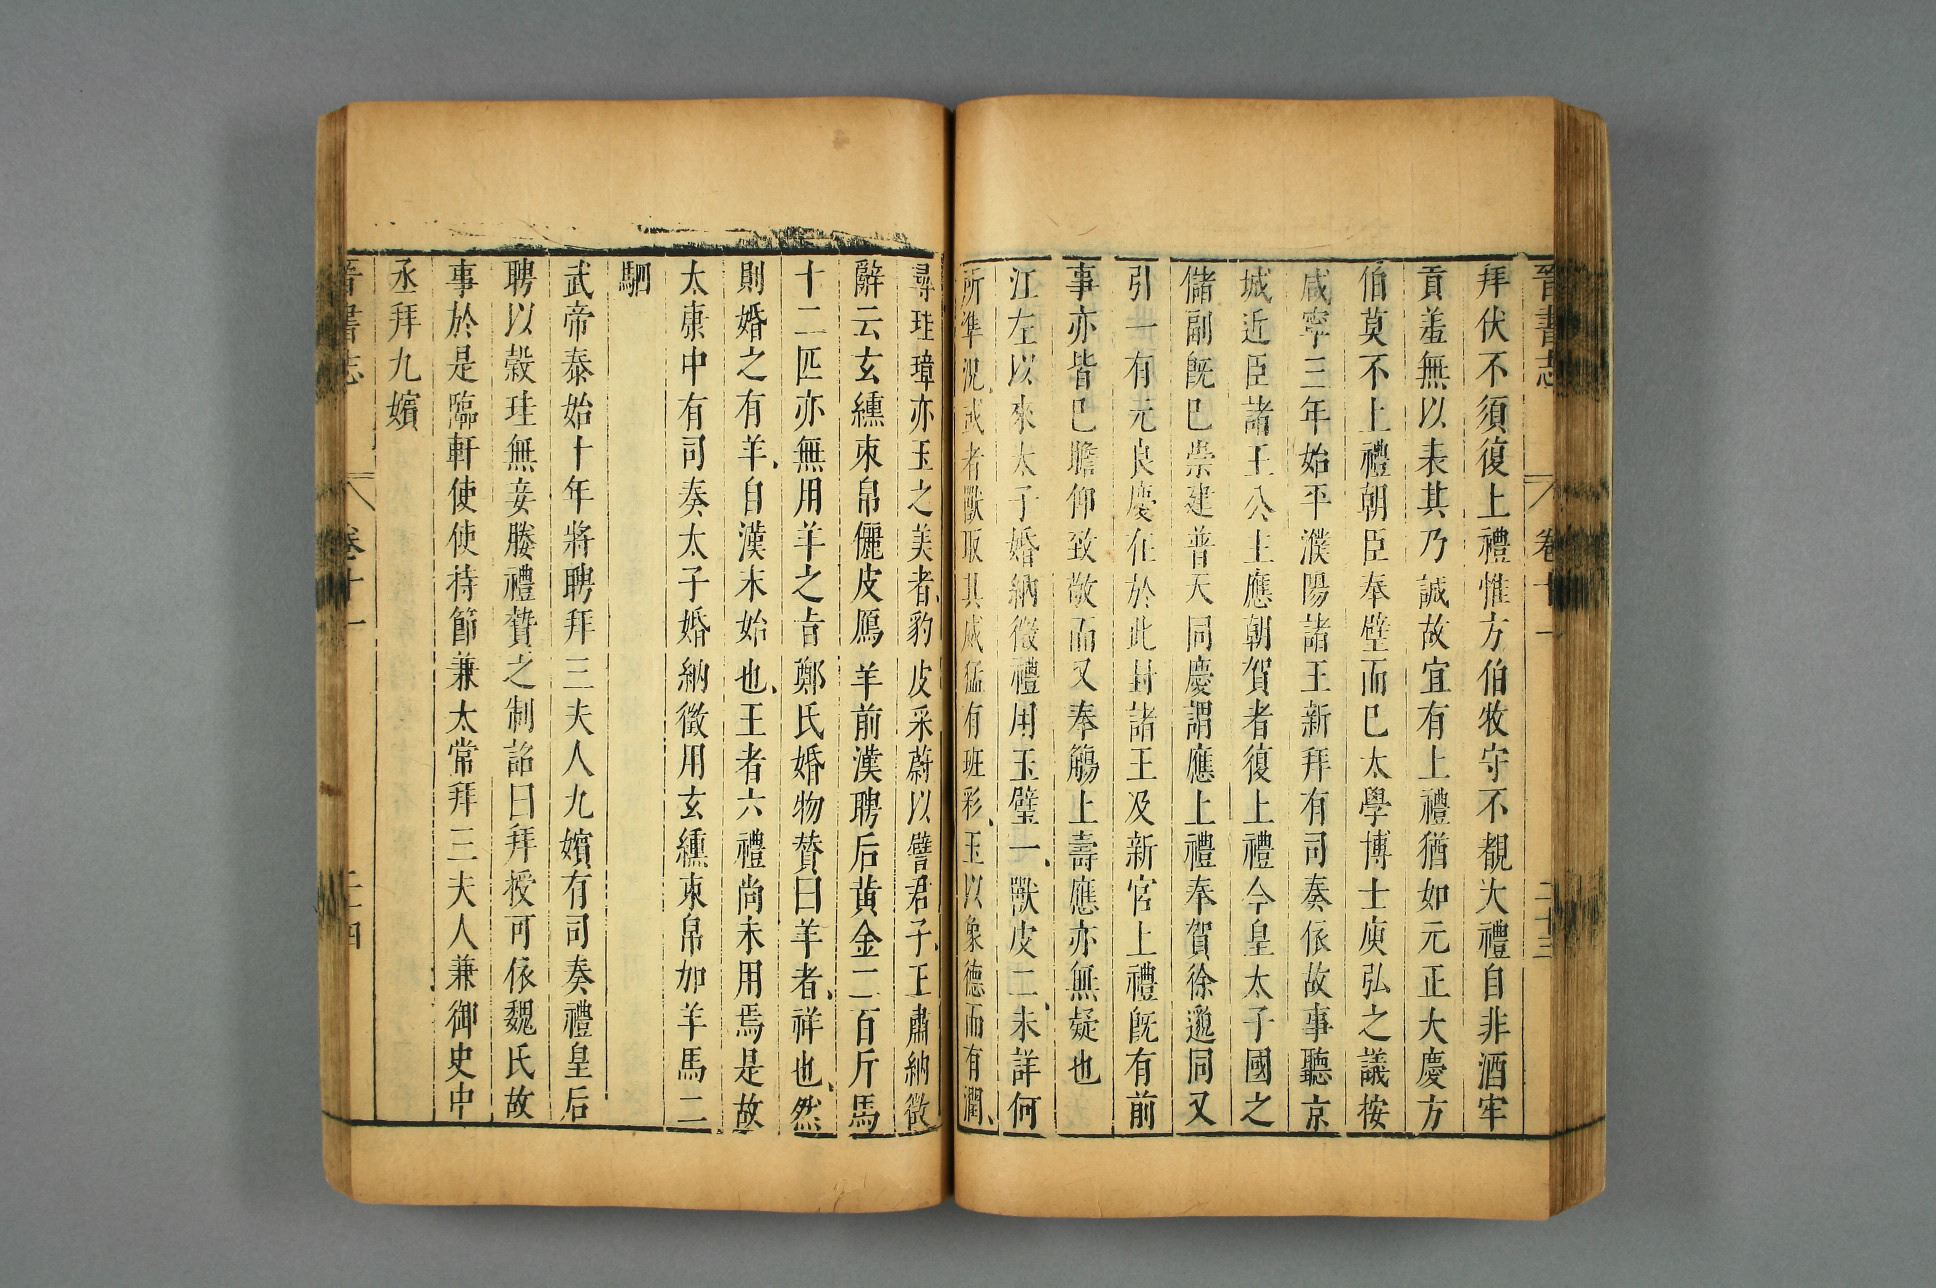 晉書志 卷十一 二十三
拜伏不須復上禮惟方伯牧守不覩大禮自非酒牢
貢羞無以表其乃誠故宜有上禮猶如元正大慶方
伯莫不上禮朝臣奉璧而已太學博士庾弘之議按
咸寧三年始平濮陽諸王新拜有司奏依故事聽京
城近臣諸王公主應朝賀者復上禮今皇太子國之
儲副旣已崇建普天同慶謂應上禮奉賀徐邈同又
引一有元良慶在於此封諸王及新官上禮旣有前
事亦皆已瞻仰致敬而又奉觴上壽應亦無疑也
江左以來太子婚納徵禮用玉璧一、獸皮二、未詳何
所準況、或者獸取其威猛有班彩、玉以象德而有潤、
尋珪璋亦玉之美者、豹皮采蔚以譬君子、王肅納徵
辭云玄纁束帛儷皮鴈羊前漢聘后黃金二百斤馬
十二匹亦無用羊之旨鄭氏婚物贊曰羊者、祥也、然
則婚之有羊、自漢末始也、王者六禮尚未用焉是故
太康中有司奏太子婚納徵用玄纁束帛加羊馬二
駟
武帝泰始十年將聘拜三夫人九嬪有司奏禮皇后
聘以穀珪無妾媵禮贄之制詔曰拜授可依魏氏故
事於是臨軒使使持節兼太常拜三夫人兼御史中
丞拜九嬪
晉書志 卷十一 二十四